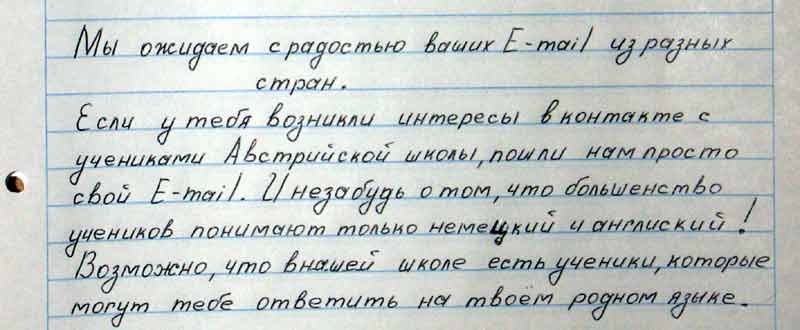 Мы ожидаем с радостью ваших E-mail из разных
стран.
Если у тебя возникли интересы в контакте с
учениками Австрийской школы, пошли нам просто
свой E-mail. И незабудь о том, что большенство
учеников понимают только немецкий и англиский!
Возможно, что в нашей школе есть ученики, которые
могут тебе ответить на твоём родном языке.